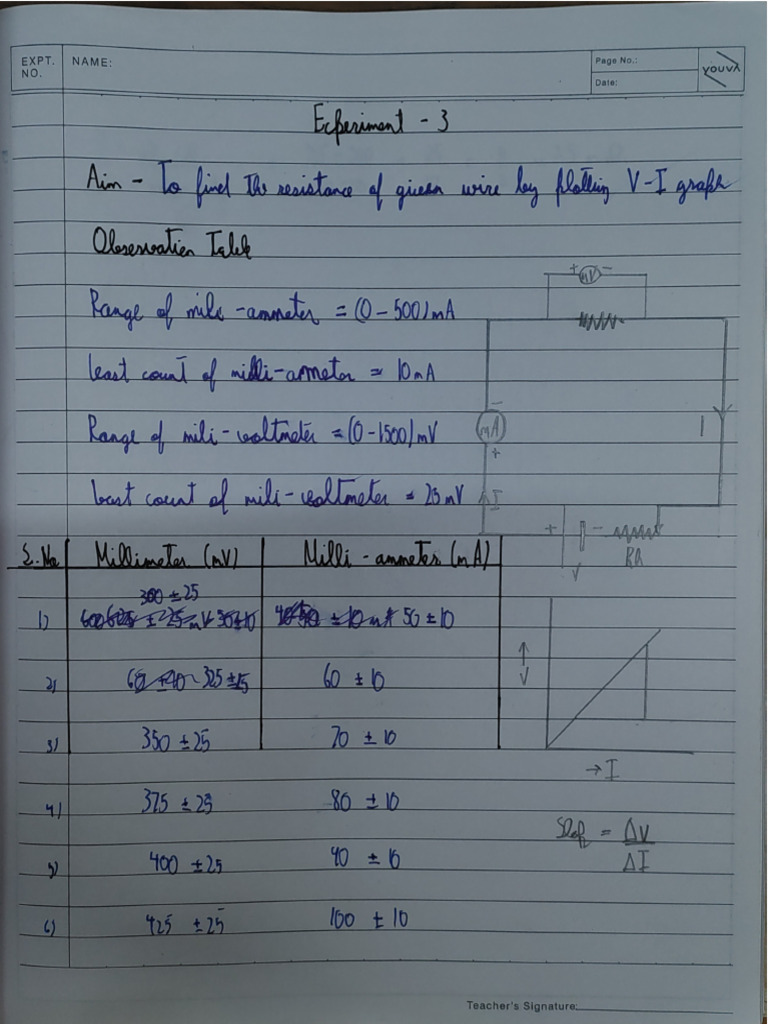 EXPT. NO.
NAME:
Page No.:
Date:
youva
Experiment - 3
Aim - To find the resistance of given wire by plotting V-I graph
Observation Table
Range of mili-ammeter = (0-500) mA
Least count of milli-ammeter = 10 mA
Range of mili-voltmeter = (0-1500) mV
Least count of mili-voltmeter = 25 mV
+ mV -
-
mA
+
I
I
+ -
V
RA
S.No Millimeter (mV) Milli-ammeter (mA)
300 ± 25
1) 50 ± 10
2) 325 ± 25 60 ± 10
3) 350 ± 25 70 ± 10
4) 375 ± 25 80 ± 10
5) 400 ± 25 90 ± 10
6) 425 ± 25 100 ± 10
↑
V
→ I
Slope = ΔV
ΔI
Teacher's Signature: